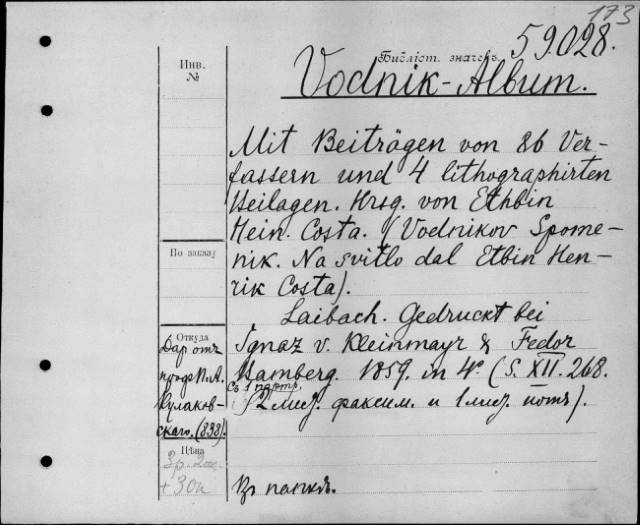 173
Библіот. значекъ 59.028.
Vodnik-Album.
Инв.
№
Mit Beiträgen von 86 Ver-
fassern und 4 lithographirten
Beilagen. Hrsg. von Ethbin
Hein. Costa. (Vodnikov Spome-
nik. Na svitlo dal Etbin Hen-
rik Costa).
По заказу
Laibach. Gedruckt bei
Ignaz v. Kleinmayr & Fedor
Bamberg. 1859. in 4º. (S. XII. 268.
съ 1 портр.
2 лист. факсим. и 1 лист. нотъ).
Откуда
Даръ отъ
проф. П. А.
Кулаков-
скаго. (898).
Цѣна
3р. 20к
+ 30к
Въ папкѣ.